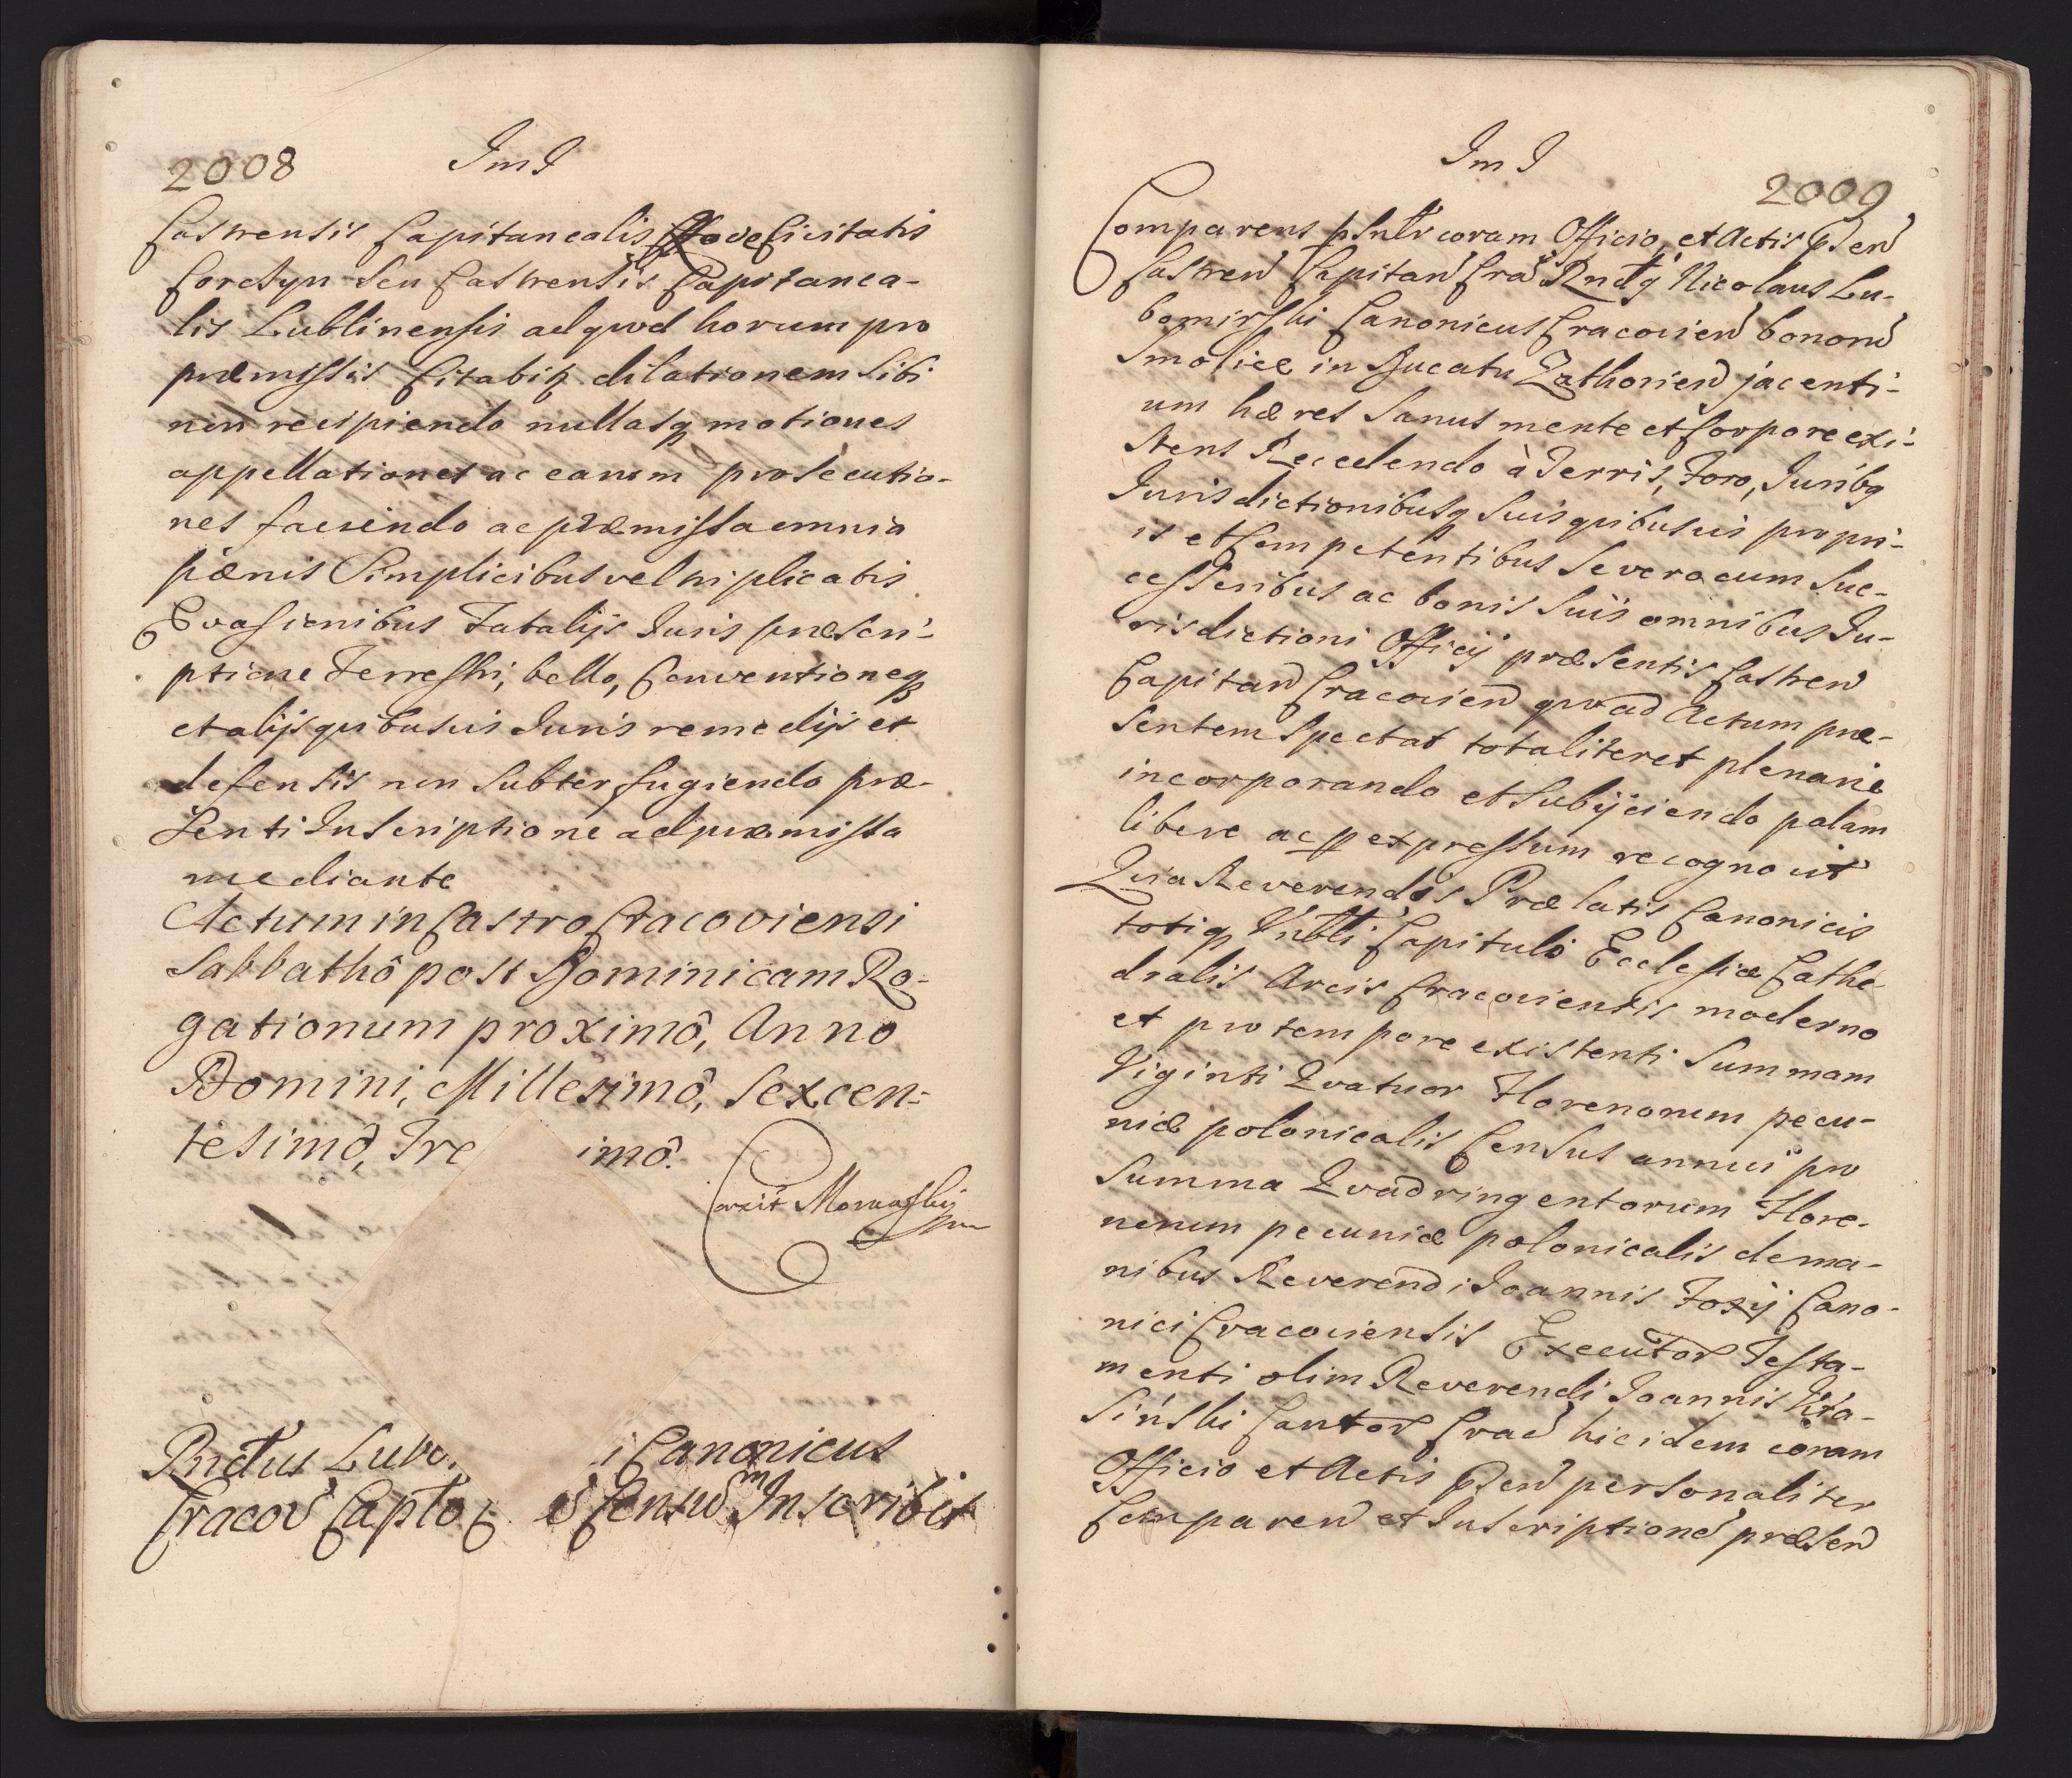 2008
ImI
Castrensis Capitanealis Novæ Civitatis
Corczyn seu Castrensis Capitanea-
lis Lublinensis ad quod horum pro
præmissis Citabit dilationem sibi
non recipiendo nullasq motiones
appellationes ac earum prosecutio-
nes faciendo ac præmissa omnia
pænis Simplicibus vel triplicatis
Evasionibus Fatalijs Iuris præscri-
ptione Terrestri, bello, Conventioneq
et alijs quibusvis Iuris remedijs et
defensis non subterfugiendo præ-
senti Inscriptione ad præmissa
mediante
Actum in Castro Cracoviensi
Sabbathô post Dominicam Ro-
gationum proximô, Anno
Domini, Millesimô, Sexcen-
tesimô, Tre imô.
Rndus Lubo i Canonicus
Cracov Capło Censum Inscribit
ImI
2009
Comparens psnlr coram Officio, et Actis Psen
Castren Capitan Cra Rndq Nicolaus Lu-
bomirski Canonicus Cracovien bonom
Smolice in Ducatu Zathorien jacenti-
um hæres sanus mente et Corpore exi-
stens Recedendo à Terris, Foro, Iuribq
Iurisdictionibusq suis quibusvis propri-
is et Competentibus se vero cum suc-
cessoribus ac bonis suis omnibus Iu-
risdictioni Officij præsentis Castren
Capitan Cracovien quoad Actum præ-
sentem spectat totaliter et plenarie
incorporando et subijciendo palam
libere ac p expressum recognovit
Quia Reverendis Prælatis Canonicis
totiq Vnbli Capitulo Ecclesiæ Cathe-
dralis Arcis Cracoviensis moderno
et pro tempore existenti Summam
Viginti Quatuor Florenorum pecu-
niæ polonicalis Census annui pro
Summa Quadringentorum Flore-
norum pecuniæ polonicalis de ma-
nibus Reverendi Ioannis Foxij Cano-
nici Cracoviensis Executor Testa-
menti olim Reverendi Ioannis
sinski Cantor Crac hic idem coram
Officio et Actis Psen personaliter
Comparen et Inscription præsen